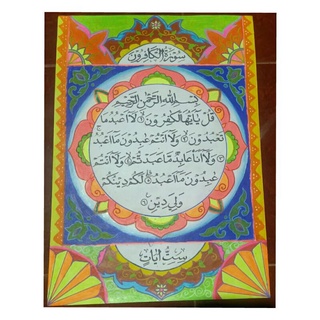 سورة الكافرون
بسم الله الرحمن الرحيم
قل يأيها الكفرون ۝١ لا أعبد ما
تعبدون ۝٢ ولا أنتم عبدون ما أعبد ۝٣
ولا أنا عابد ما عبدتم ۝٤ ولا أنتم
عبدون ما أعبد ۝٥ لكم دينكم
ولي دين ۝٦
ست آيات